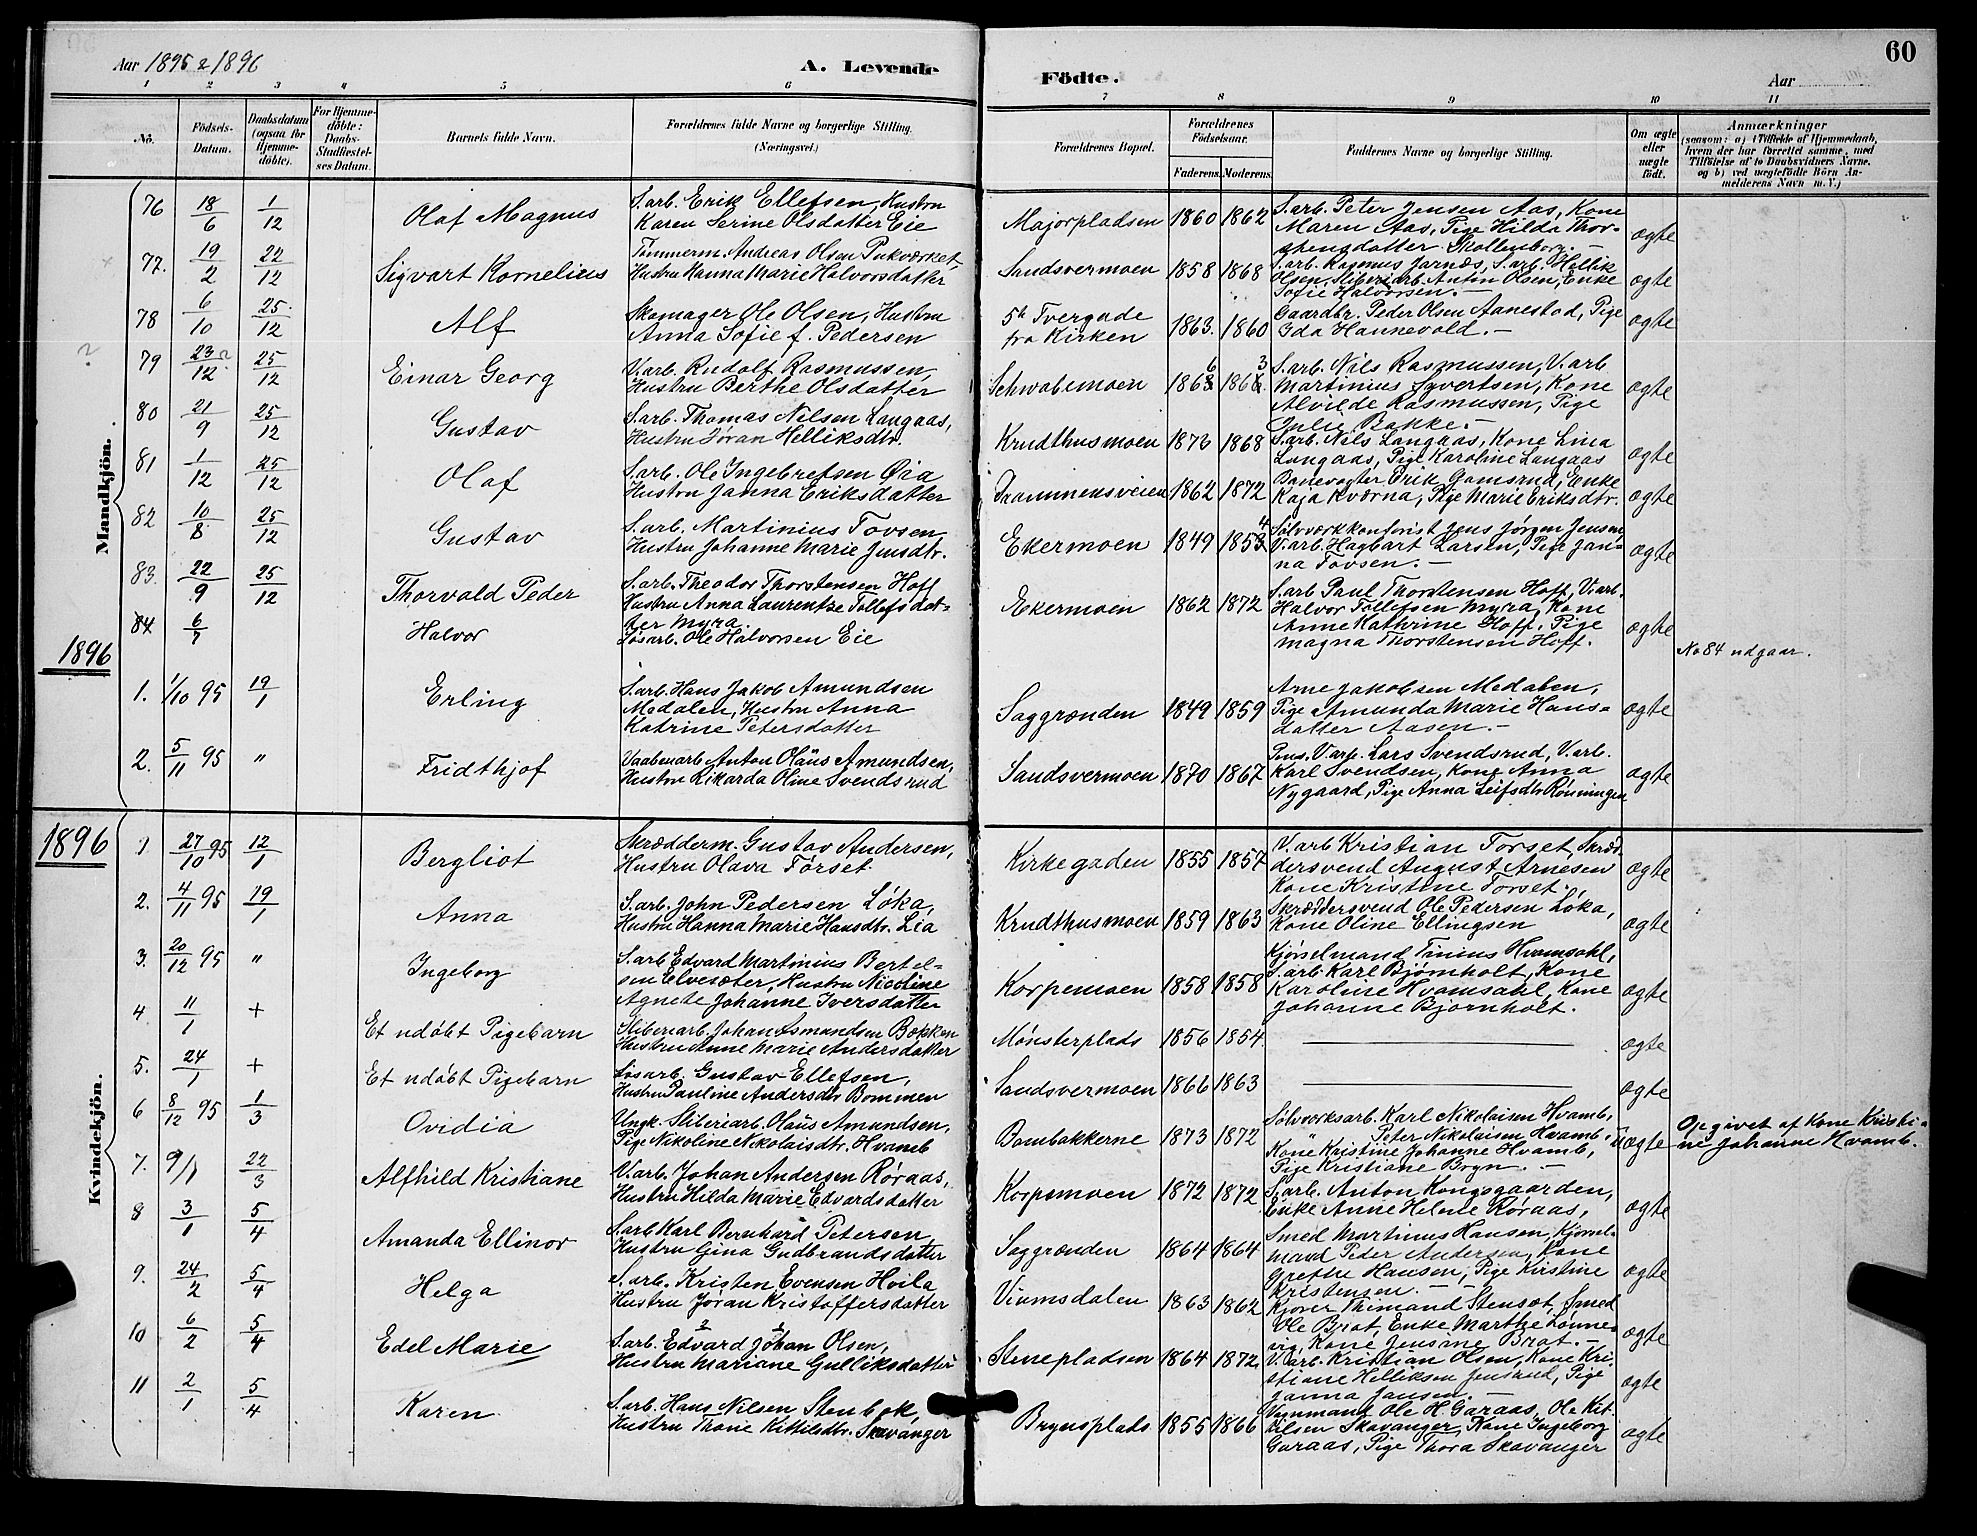 Aar 1895 & 1896
A. Levende Födte.
Aar
60
1 2 3 4 5 6 7 8 9 10 11
No.
Födsels-Datum.
Daabsdatum (ogsaa for Hjemme-döbte).
For Hjemme-döbte: Daabs-Stadfæstel-ses Datum.
Barnets fulde Navn.
Forældrenes fulde Navne og borgerlige Stilling. (Næringsvei.)
Forældrenes Bopæl.
Forældrenes Födselsaar.
Faderens. Moderens.
Faddernes Navne og borgerlige Stilling.
Om ægte eller uægte födt.
Anmærkninger
(saasom: a) i Tilfælde af Hjemmedaab, hvem der har forrettet samme, med Tilföielse af to Daabsvidners Navne, og b) ved uægtefödte Börn An-melderens Navn m. V.)
Mandkjön.
76 18/6 1/12 Olaf Magnus
S.arb. Erik Ellefsen, Hustru
Karen Serine Olsdatter Eie
Majorpladsen 1860 1862
S.arb. Peter Jensen Aas, Kone
Maren Aas, Pige Hilda Thor-
datter Skollenborg. —
ægte
77. 19/2 22/12 Sigvart Kornelius
Tömmerm. Andreas Olsen Pukværket,
Hustru Hanna Marie Halvorsdatter
Sandsvermoen 1858 1868
S.arb. Rasmus Jarnæs, S.arb. Hellik
Olsen, Sliberiarb. Anton Olsen, Enke
Sofie Halvorsen. —
ægte
78 6/10 25/12 Alf
Skomager Ole Olsen, Hustru
Anna Sofie f. Pedersen
5te Tvergade
fra Kirken 1863. 1860
Gaardbr. Peder Olsen Aanestad, Pige
Ida Hannevold. —
ægte
?
79 23/12 ? 25/12 Einar Georg
V.arb. Rudolf Rasmussen,
Hustru Berthe Olsdatter
Schwabemoen 1866 1863
S.arb. Nils Rasmussen, V.arb
Martinius Syvertsen, Kone
Alvilde Rasmussen, Pige
Julie Bakke. —
ægte
80 21/9 25/12 Gustav
S.arb. Thomas Nilsen Langaas,
Hustru Jöran Helliksdtr.
Krudthusmoen 1872 1868
S.arb. Nils Langaas, Kone Lina
Langaas, Pige Karoline Langaas
ægte
81 1/12 25/12 Olaf
S.arb. Ole Ingebretsen Øia
Hustru Janna Eriksdatter
Drammensveien 1862 1872
Banevogter Erik Gamsrud, Enke
Kaja Kværna, Pige Marie Eriksdtr.
ægte
82 10/8 25/12 Gustav
S.arb. Martinius Tovsen
Hustru Johanne Marie Jensdtr.
Ekermoen 1849 1854
Sölvværkkontorist Jens Jörgen Jensen,
V.arb. Hagbart Larsen, Pige Jan-
na Tovsen. —
ægte
83. 22/9 25/12 Thorvald Peder
S.arb. Theodor Thorstensen Hoff
Hustru Anna Laurentze Tollefsdat-
ter Myra.
Ekermoen 1862 1872
S.arb. Paul Thorstensen Hoff, V.arb.
Halvor Tollefsen Myra, Kone
Anne Kathrine Hoff, Pige
Magna Thorstensen Hoff.
ægte
84 6/7 Halvor
Lösarb. Ole Halvorsen Eie
No 84 udgaar.
1896
1. 1/10 95 19/1 Erling
S.arb. Hans Jakob Amundsen
Medalen, Hustru Anna
Katrine Petersdatter
Saggrænden 1849 1859
Arne Jakobsen Medalen,
Pige Amunda Marie Hans-
datter Aasen. —
ægte
2. 5/11 95 " Fridthjof
Vaabenarb. Anton Olaus Amundsen,
Hustru Rikarda Oline Svendsrud
Sandsvermoen 1870 1867
Pens. V.arb. Lars Svendsrud, V.arb.
Karl Svendsen, Kone Anna
Nygaard, Pige Anna Leifsdtr Rönningen
ægte
1896
Kvindekjön.
1 27/10 95 12/1 Bergliot
Skrædderm. Gustav Andersen,
Hustru Olava Torset
Kirkegaden 1855 1857
V.arb Kristian Torset, Skræd-
dersvend August Arnesen
Kone Kristine Torset.
ægte
2. 4/11 95 19/1 Anna
S.arb. John Pedersen Löka,
Hustru Hanna Marie Hansdtr. Lia
Krudthusmoen 1859 1863
Skræddersvend Ole Pedersen Löka,
Kone Oline Ellingsen
ægte
3. 20/12 95 " Ingeborg
S.arb Edvard Martinius Bertel-
sen Elvesæter, Hustru Nicoline
Agnete Johanne Iversdatter
Korpemoen 1858 1858
Kjörselmand Tinius Hvamsahl,
S.arb Karl Bjørnholt, Kone
Karoline Hvamsahl, Kone
Johanne Bjørnholt.
ægte
4. 11/1 + Et udöbt Pigebarn
Sliberiarb. Johan Asmundsen Bækken
Hustru Anne Marie Andersdatter
Mönsterplads 1856 1854.
ægte
5. 24/1 + Et udöbt Pigebarn
Lösarb. Gustav Ellefsen,
Hustru Pauline Andersdtr Bommen
Sandsvermoen 1866 1863
ægte
6 8/12 95 1/3 Ovidia
Ungk. Sliberiarb. Olaus Amundsen,
Pige Nikoline Nikolaisdtr. Hvamb
Bambakkerne 1873 1872
Sölvværksarb. Karl Nikolaisen Hvamb,
Peter Nikolaisen Hvamb,
Kone Kristine Johanne Hvamb,
Pige Kristiane Bryn. —
uægte
Opgivet af Kone Kristi-
ne Johanne Hvamb.
7. 9/1 22/3 Alfhild Kristiane
V.arb. Johan Andersen Röraas,
Hustru Hilda Marie Edvardsdatter
Korpemoen 1872 1872
S.arb. Anton Kongsgaarden,
Enke Anne Helene Röraas,
ægte
8 3/1 5/4 Amanda Ellinor
S.arb Karl Bernhard Petersen,
Hustru Gina Gudbrandsdatter
Saggrænden 1864 1864
Smed Martinus Hansen, Kjörsel-
mand Peter Andersen, Kone
Grethe Hansen, Pige Kirstine
Kristensen. —
ægte
9. 24/2 5/4 Helga
S.arb. Kristen Evensen Hvila
Hustru Jöran Kristoffersdatter
Viumsdalen 1863 1862
Kjörer Thimand Stenset, Smed
Ole Brat, Enke Marthe Lonne-
vig, Kone Jensine Brat. —
ægte
10 6/2 5/4 Edel Marie
2 1
S.arb. Edvard Johan Olsen,
Hustru Mariane Gulliksdatter
Stenepladsen 1864 1872
V.arb. Kristian Olsen, Kone Kri-
stiane Helliksen Jensrud, Pige
Janna Jansen. —
ægte
11 2/1 5/4 Karen
S.arb. Hans Nilsen Stenbæk,
Hustru Thone Kittilsdtr. Skavanger
Brynsplads 1855 1866
Veinmand Ole H. Garaas, Ole Kit-
tilsen Skavanger, Kone Ingeborg
Garaas, Pige Thora Skavanger
ægte